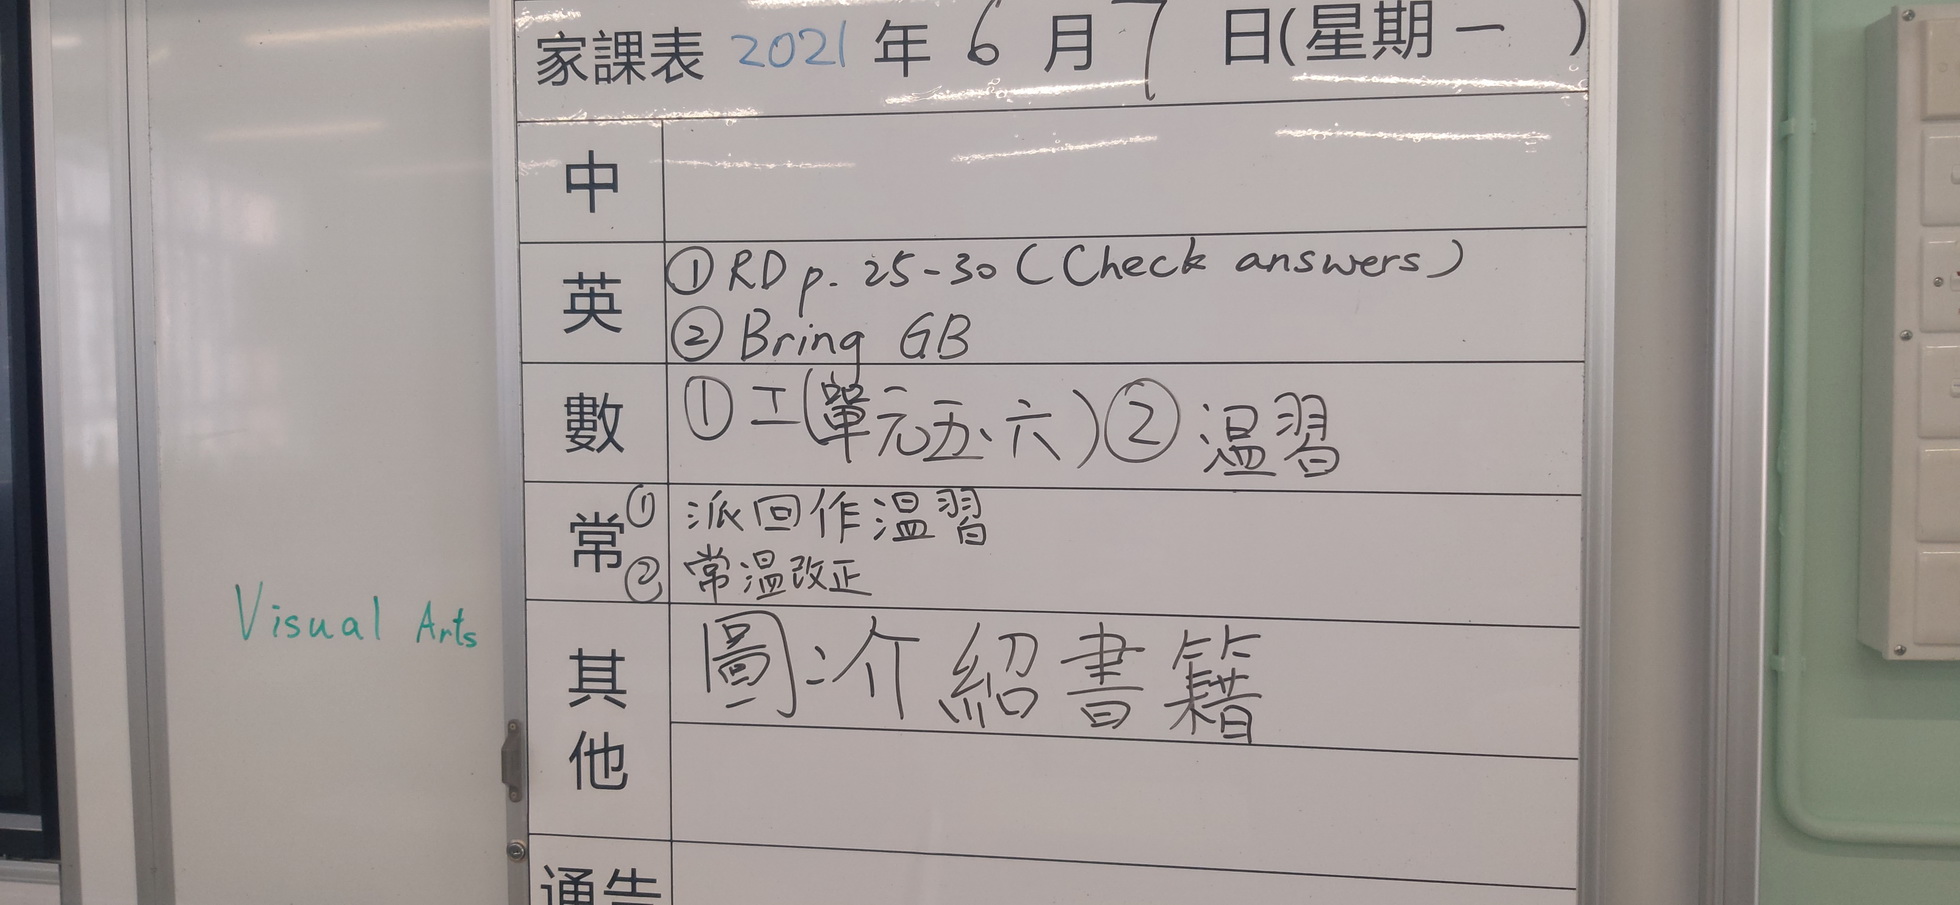 家課表 2021 年 6 月 7 日(星期一 )
中
英
① RD p. 25-30 (Check answers)
② Bring GB
數
① 工(單元五、六) ② 温習
常
① 派回作温習
② 常温改正
其他
圖:介紹書籍
通告
Visual Arts